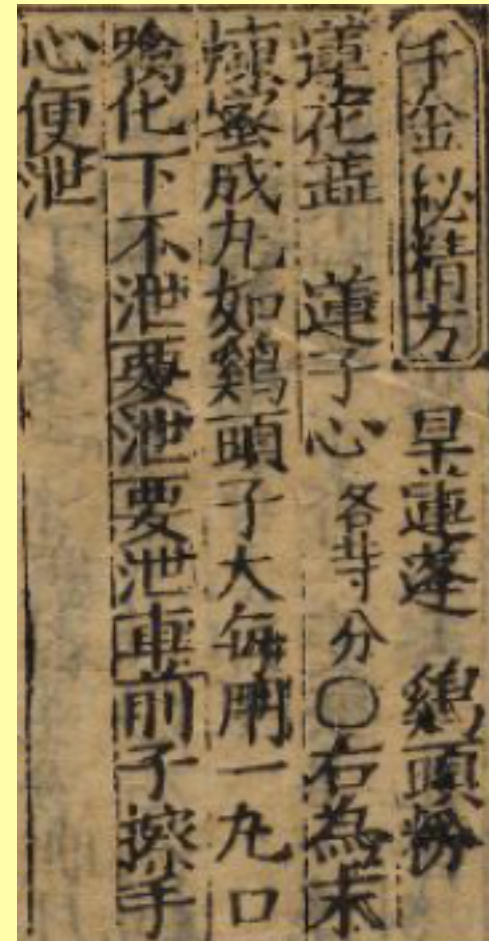 千金秘精方　旱蓮蓬　鷄頭粉
蓮花蕋　蓮子心各等分○右為末
煉蜜成丸如鷄頭子大每用一丸口
噙化下不泄要泄要泄車前子擦手
心便泄